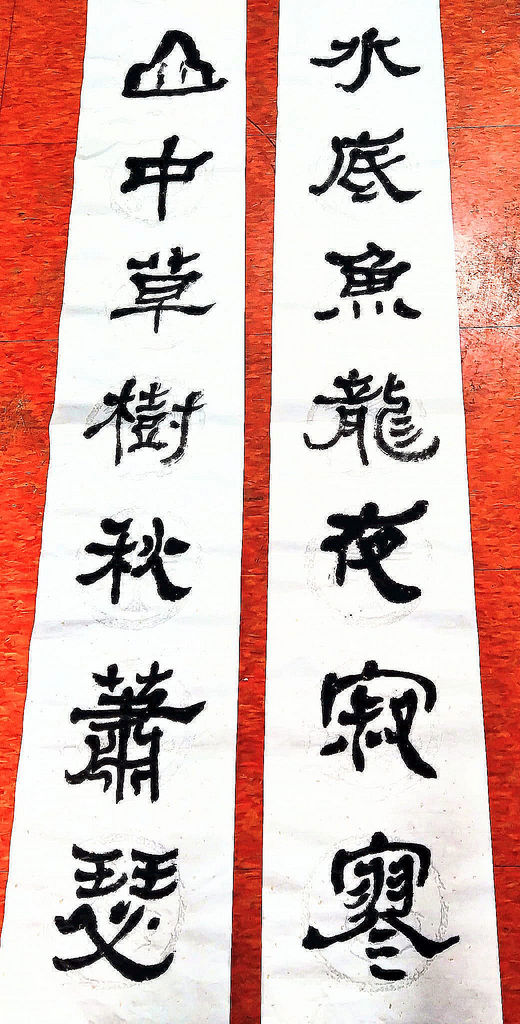 水底魚龍夜寂寥
山中草樹秋蕭瑟